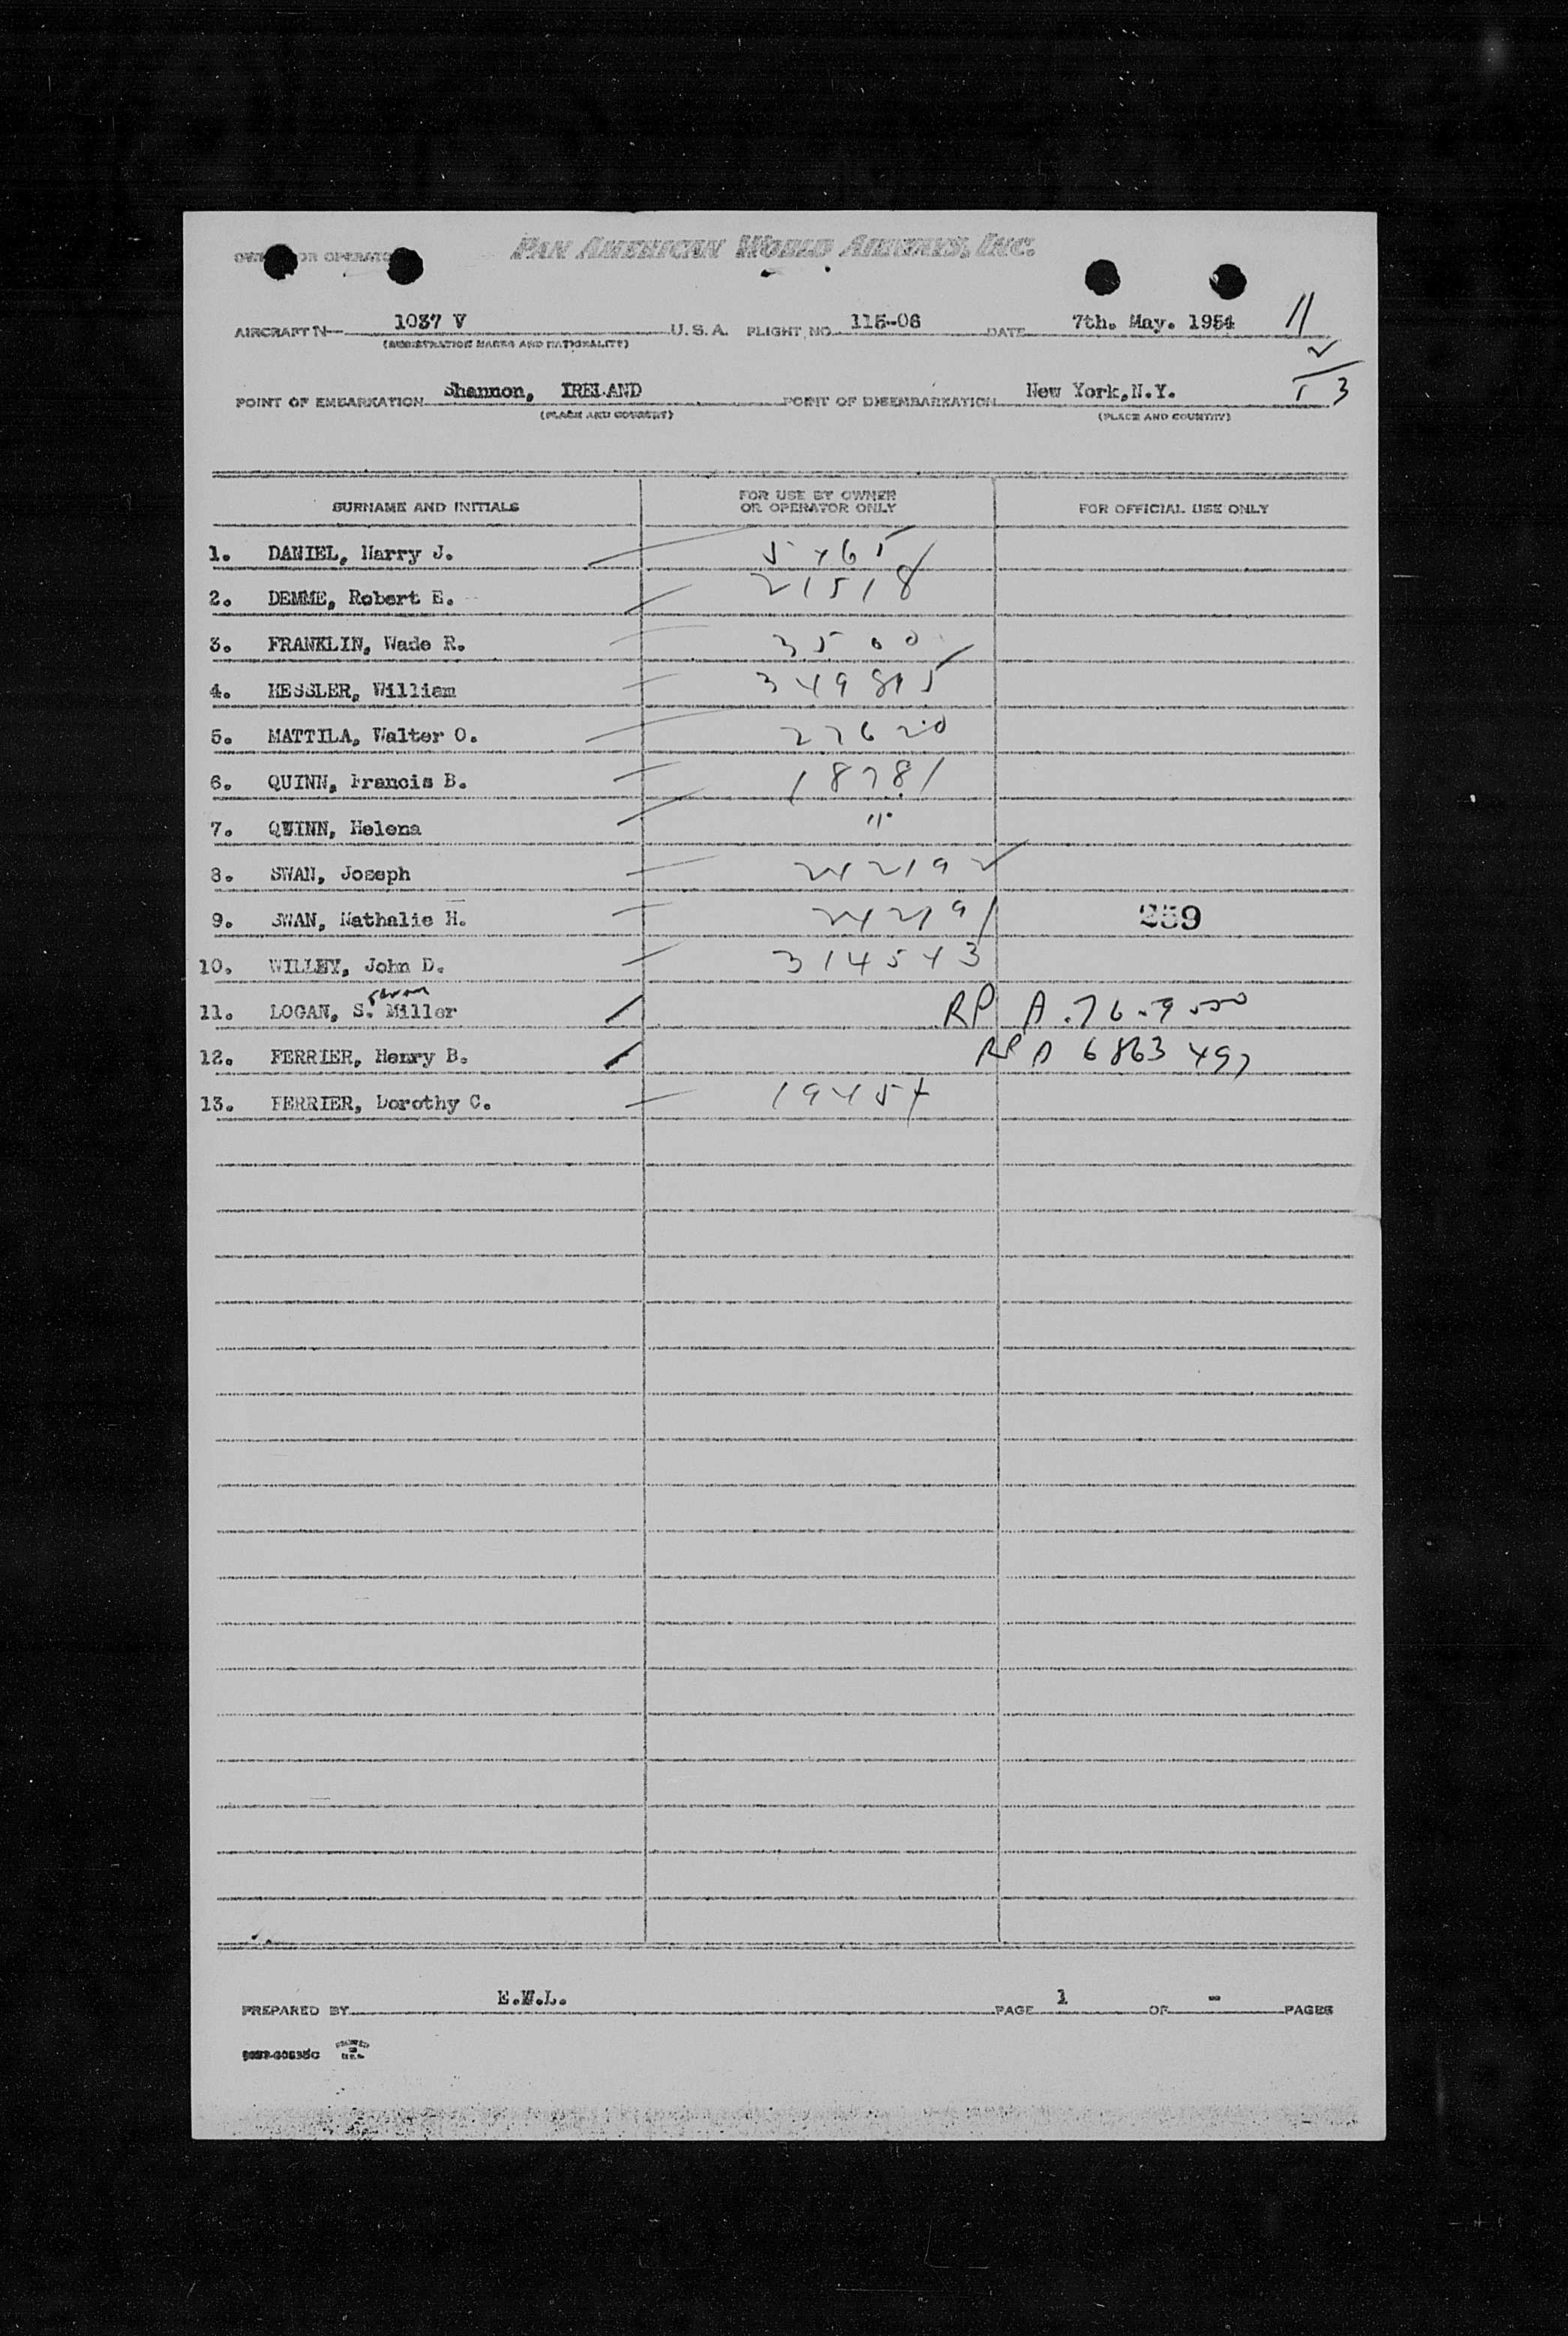 OWNER OR OPERATOR PAN AMERICAN WORLD AIRWAYS, INC.
AIRCRAFT N— 1037 V U.S.A. FLIGHT NO. 115-06 DATE 7th. May. 1954 11
(REGISTRATION MARKS AND NATIONALITY)
2
POINT OF EMBARKATION Shannon, IRELAND POINT OF DISEMBARKATION New York,N.Y. 13
(PLACE AND COUNTRY) (PLACE AND COUNTRY)
SURNAME AND INITIALS FOR USE BY OWNER OR OPERATOR ONLY FOR OFFICIAL USE ONLY
1. DANIEL, Harry J. 5465
2. DEMME, Robert E. 21518
3. FRANKLIN, Wade R. 3500
4. HESSLER, William 349815
5. MATTILA, Walter O. 27620
6. QUINN, Francis B. 18781
7. QUINN, Helena "
8. SWAN, Joseph 242192
9. SWAN, Nathalie H. 242191 259
10. WILLEY, John D. 314543
11. LOGAN, S. Miller RP A
12. FERRIER, Henry B. RP A 6863497
13. FERRIER, Dorothy C. 19454
PREPARED BY E.W.L. PAGE 1 OF - PAGES
PRINTED IN U.S.A.